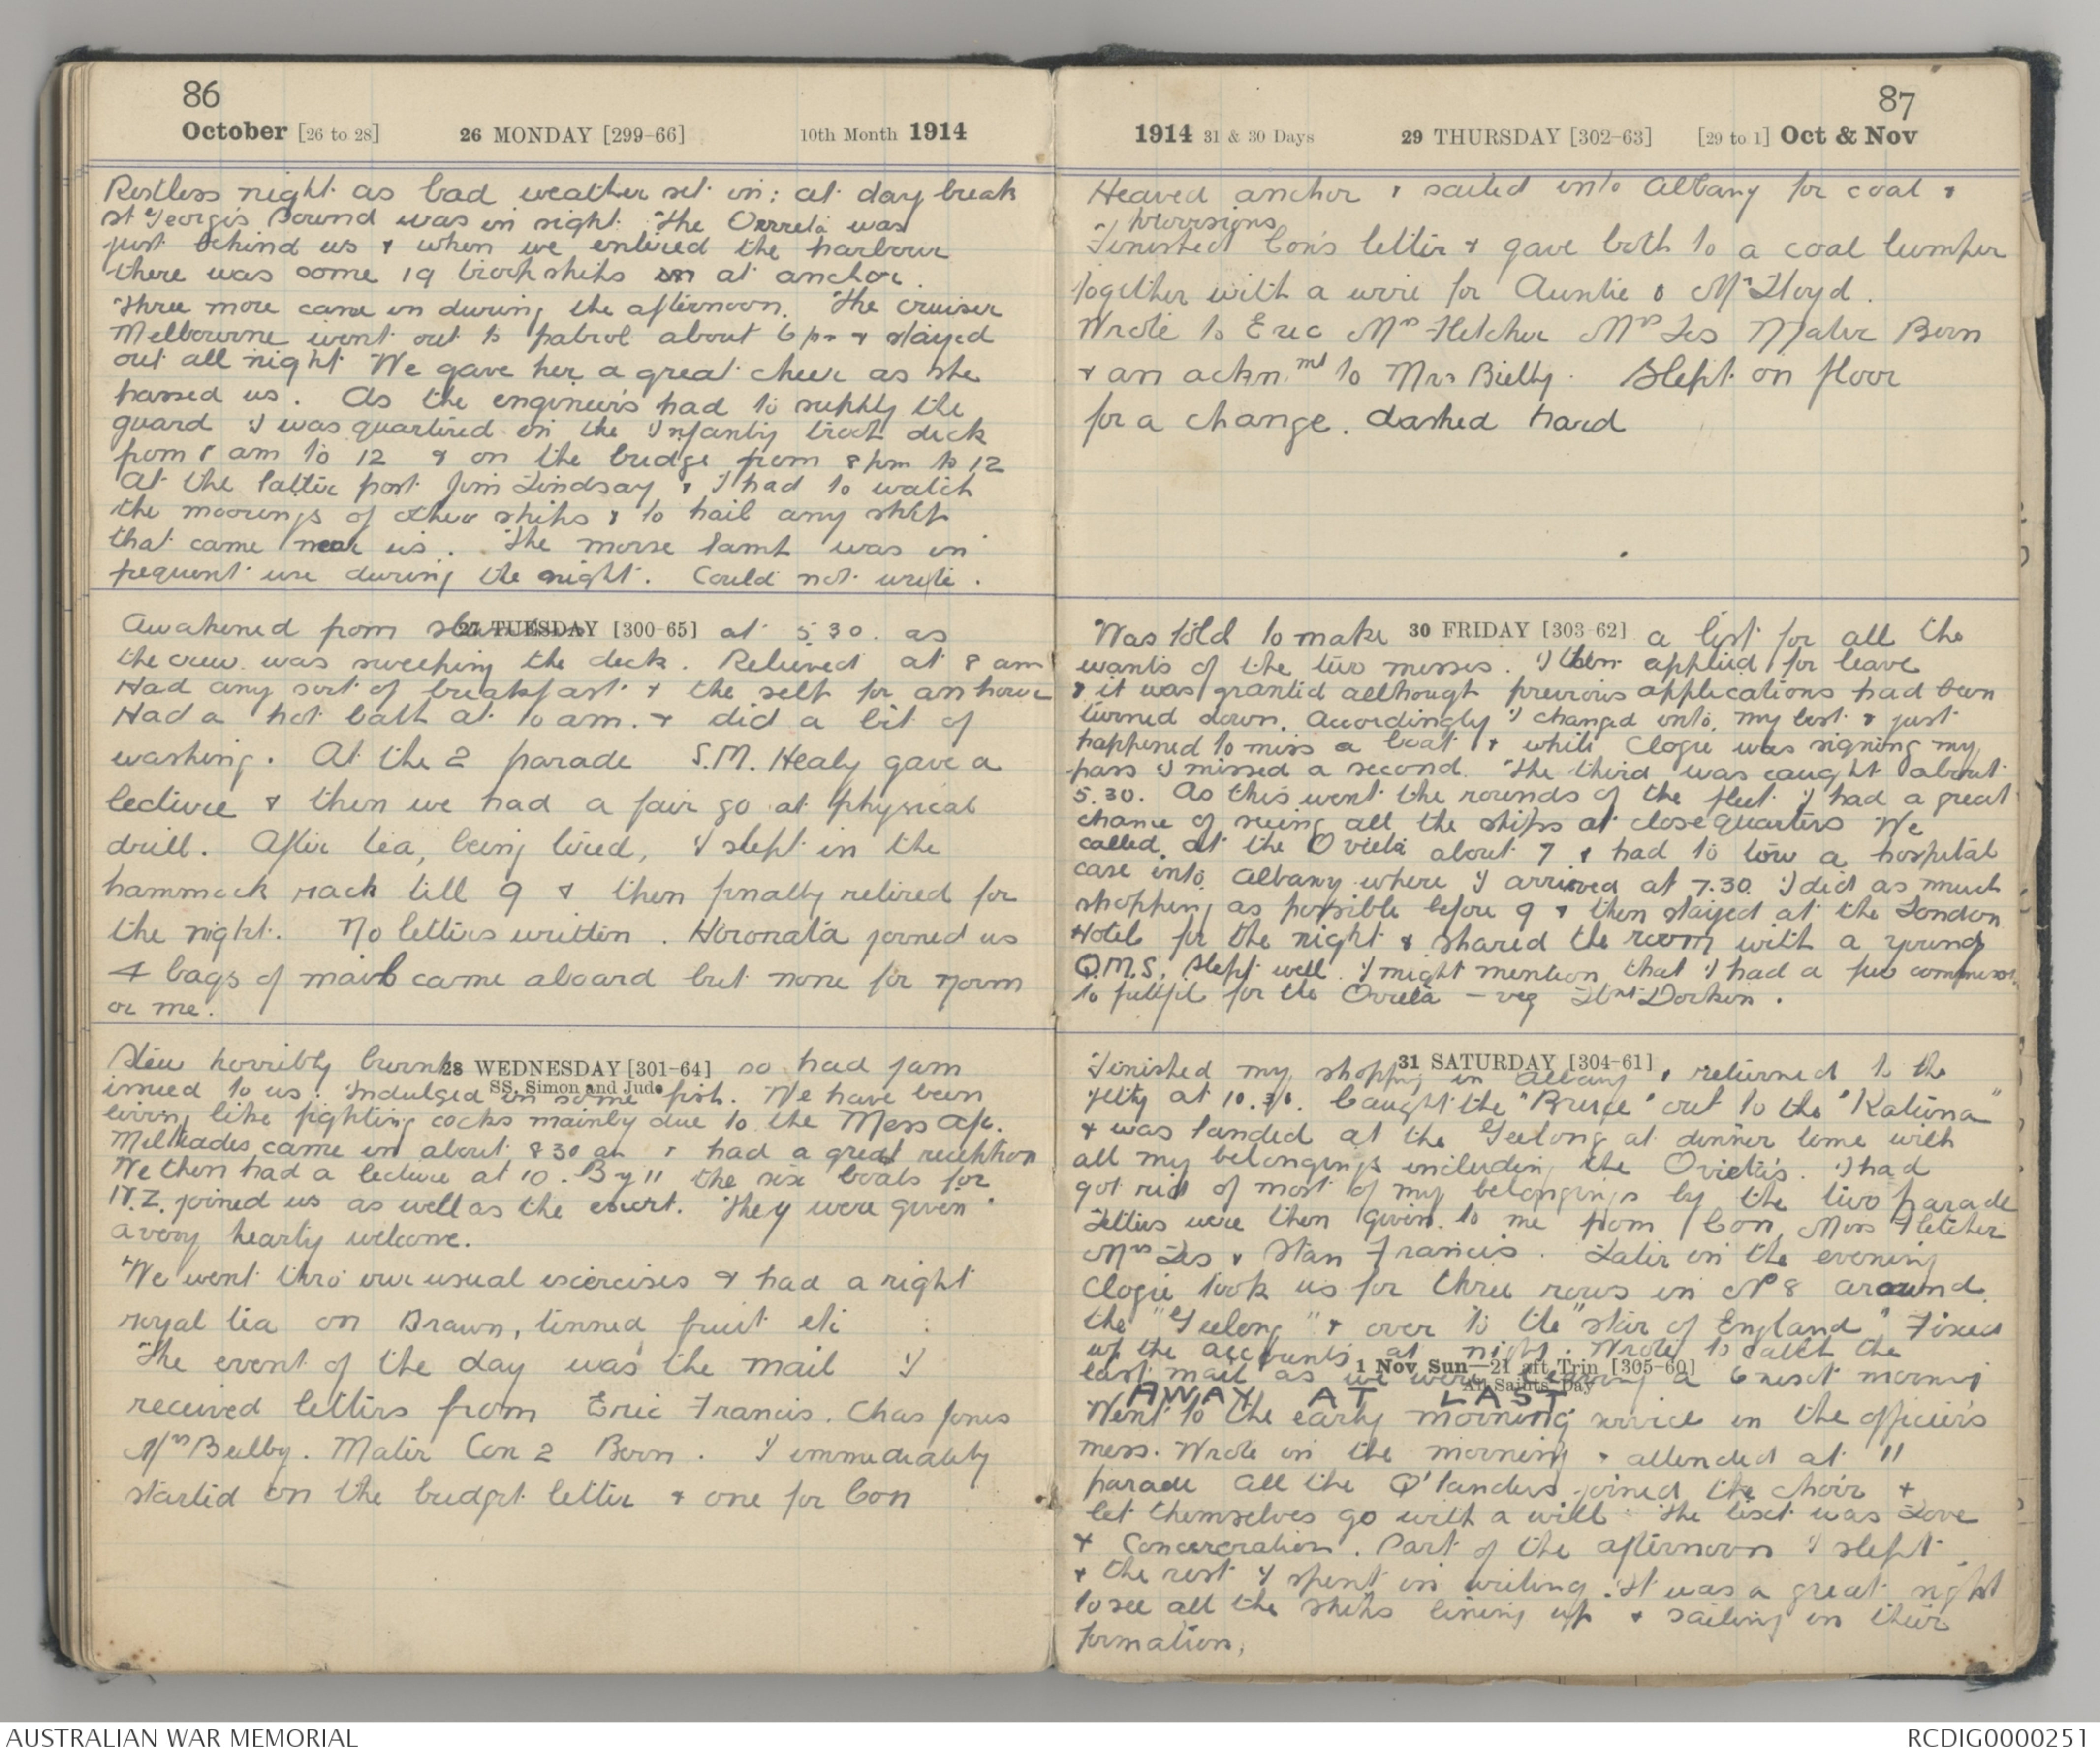 86
October [26 to 28] 26 MONDAY [299-66] 10th Month 1914
Restless night as bad weather set in: at day break
St George's Sound was in sight. The Orvieto was
just behind us & when we entered the harbour
there was some 19 troopships at anchor.
Three more came in during the afternoon. The cruiser
Melbourne went out to patrol about 6 pm & stayed
out all night We gave her a great cheer as she
passed us. As the engineers had to supply the
guard I was quartered on the Infantry troop deck
from 8 am to 12 & on the bridge from 8 pm to 12
At the latter post Jim Lindsay & I had to watch
the moorings of other ships & to hail any ship
that came near us. The morse lamp was in
frequent use during the night. Could not write.
27 TUESDAY [300-65]
Awakened from at 5 30. as
the crew was sweeping the deck. Relieved at 8 am
Had any sort of breakfast & the self for an hour
Had a hot bath at 10 am. & did a bit of
washing. At the 2 parade S.M. Healy gave a
lecture & then we had a fair go at physical
drill. After tea, being tired, I slept in the
hammock rack till 9 & then finally retired for
the night. No letters written. Hironata joined us
4 bags of mail came aboard but none for Norm
or me.
28 WEDNESDAY [301-64]
SS. Simon and Jude
Stew horribly burnt so had jam
issued to us. Indulged in some fish. We have been
living like fighting cocks mainly due to the Mess A/c.
Miltiades came in about 8 30 am & had a great reception
We then had a lecture at 10. By 11 the six boats for
N.Z. joined us as well as the escort. They were given
a very hearty welcome.
We went thro our usual exercises & had a right
royal tea on Brawn, tinned fruit etc
The event of the day was the mail I
received letters from Eric Francis. Chas Jones
Mrs Beilby. Mater Con 2 Bern. I immediately
started on the budget letter & one for Con
87
1914 31 & 30 Days 29 THURSDAY [302-63] [29 to 1] Oct & Nov
Heaved anchor & sailed into Albany for coal &
provisions
Finished Con's letter & gave both to a coal lumper
together with a wire for Auntie & Mr Lloyd.
Wrote to Eric Mrs Fletcher Mrs Les Mater Bern
& an ackn.mt to Mrs Bielby. Slept on floor
for a change. dashed hard
30 FRIDAY [303-62]
Was told to make a list for all the
wants of the two messes. I then applied for leave
& it was granted although previous applications had been
turned down. Accordingly I changed into my best & just
happened to miss a boat & while Clogie was signing my
pass I missed a second. The third was caught about
5.30. As this went the rounds of the fleet I had a great
chance of seeing all the ships at close quarters We
called at the Orvieto about 7 & had to tow a hospital
case into Albany where I arrived at 7.30. I did as much
shopping as possible before 9 & then stayed at the London
Hotel for the night & shared the room with a young
Q.M.S. Slept well. I might mention that I had a few
to fulfil for the Orvieto -
31 SATURDAY [304-61]
Finished my shopping in Albany & returned to the
jetty at 10.30. Caught the "Bruce" out to the "Katuna"
& was landed at the Geelong at dinner time with
all my belongings including the Orvieto's. I had
got rid of most of my belongings by the two parade
Letters were then given to me from Con, Mrs Fletcher
Mrs Les & Stan Francis. Later in the evening
Clogie took us for three rows in No 8 around
the "Geelong" & over to the "Star of England" Fixed
up the accounts at night. Wrote to catch the
last mail as we were leaving at 6 next morning
1 Nov Sun-21 aft Trin [305-60]
All Saints' Day
AWAY AT LAST
Went to the early morning service in the officers
mess. Wrote in the morning & attended at 11
parade all the Q'landers joined the choir &
let themselves go with a will. The text was Love
& Concecration. Part of the afternoon I slept
& the rest I spent in writing. It was a great sight
to see all the ships lining up & sailing in their
formation.
AUSTRALIAN WAR MEMORIAL
RCDIG0000251